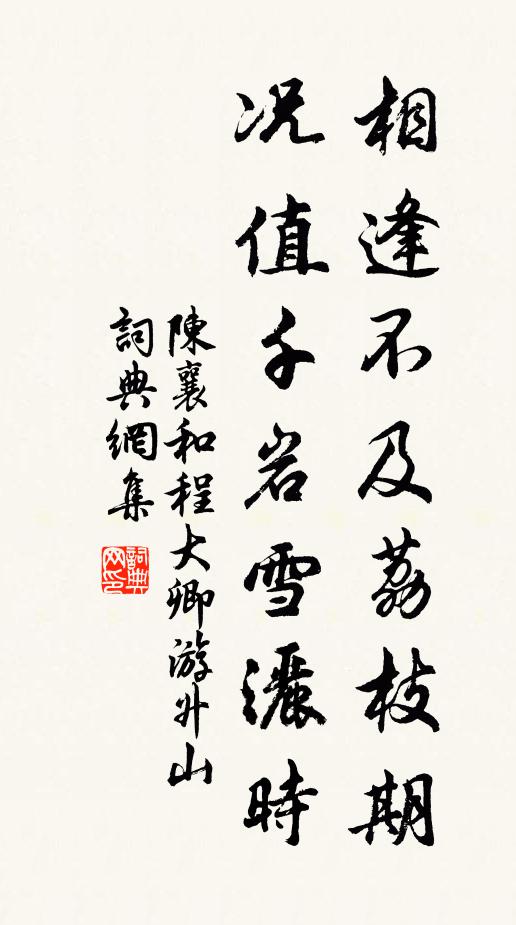 相逢不及荔枝期
况值千岩雪灑時
陳襄和程大卿游升山
詞典網集
詞典
网印